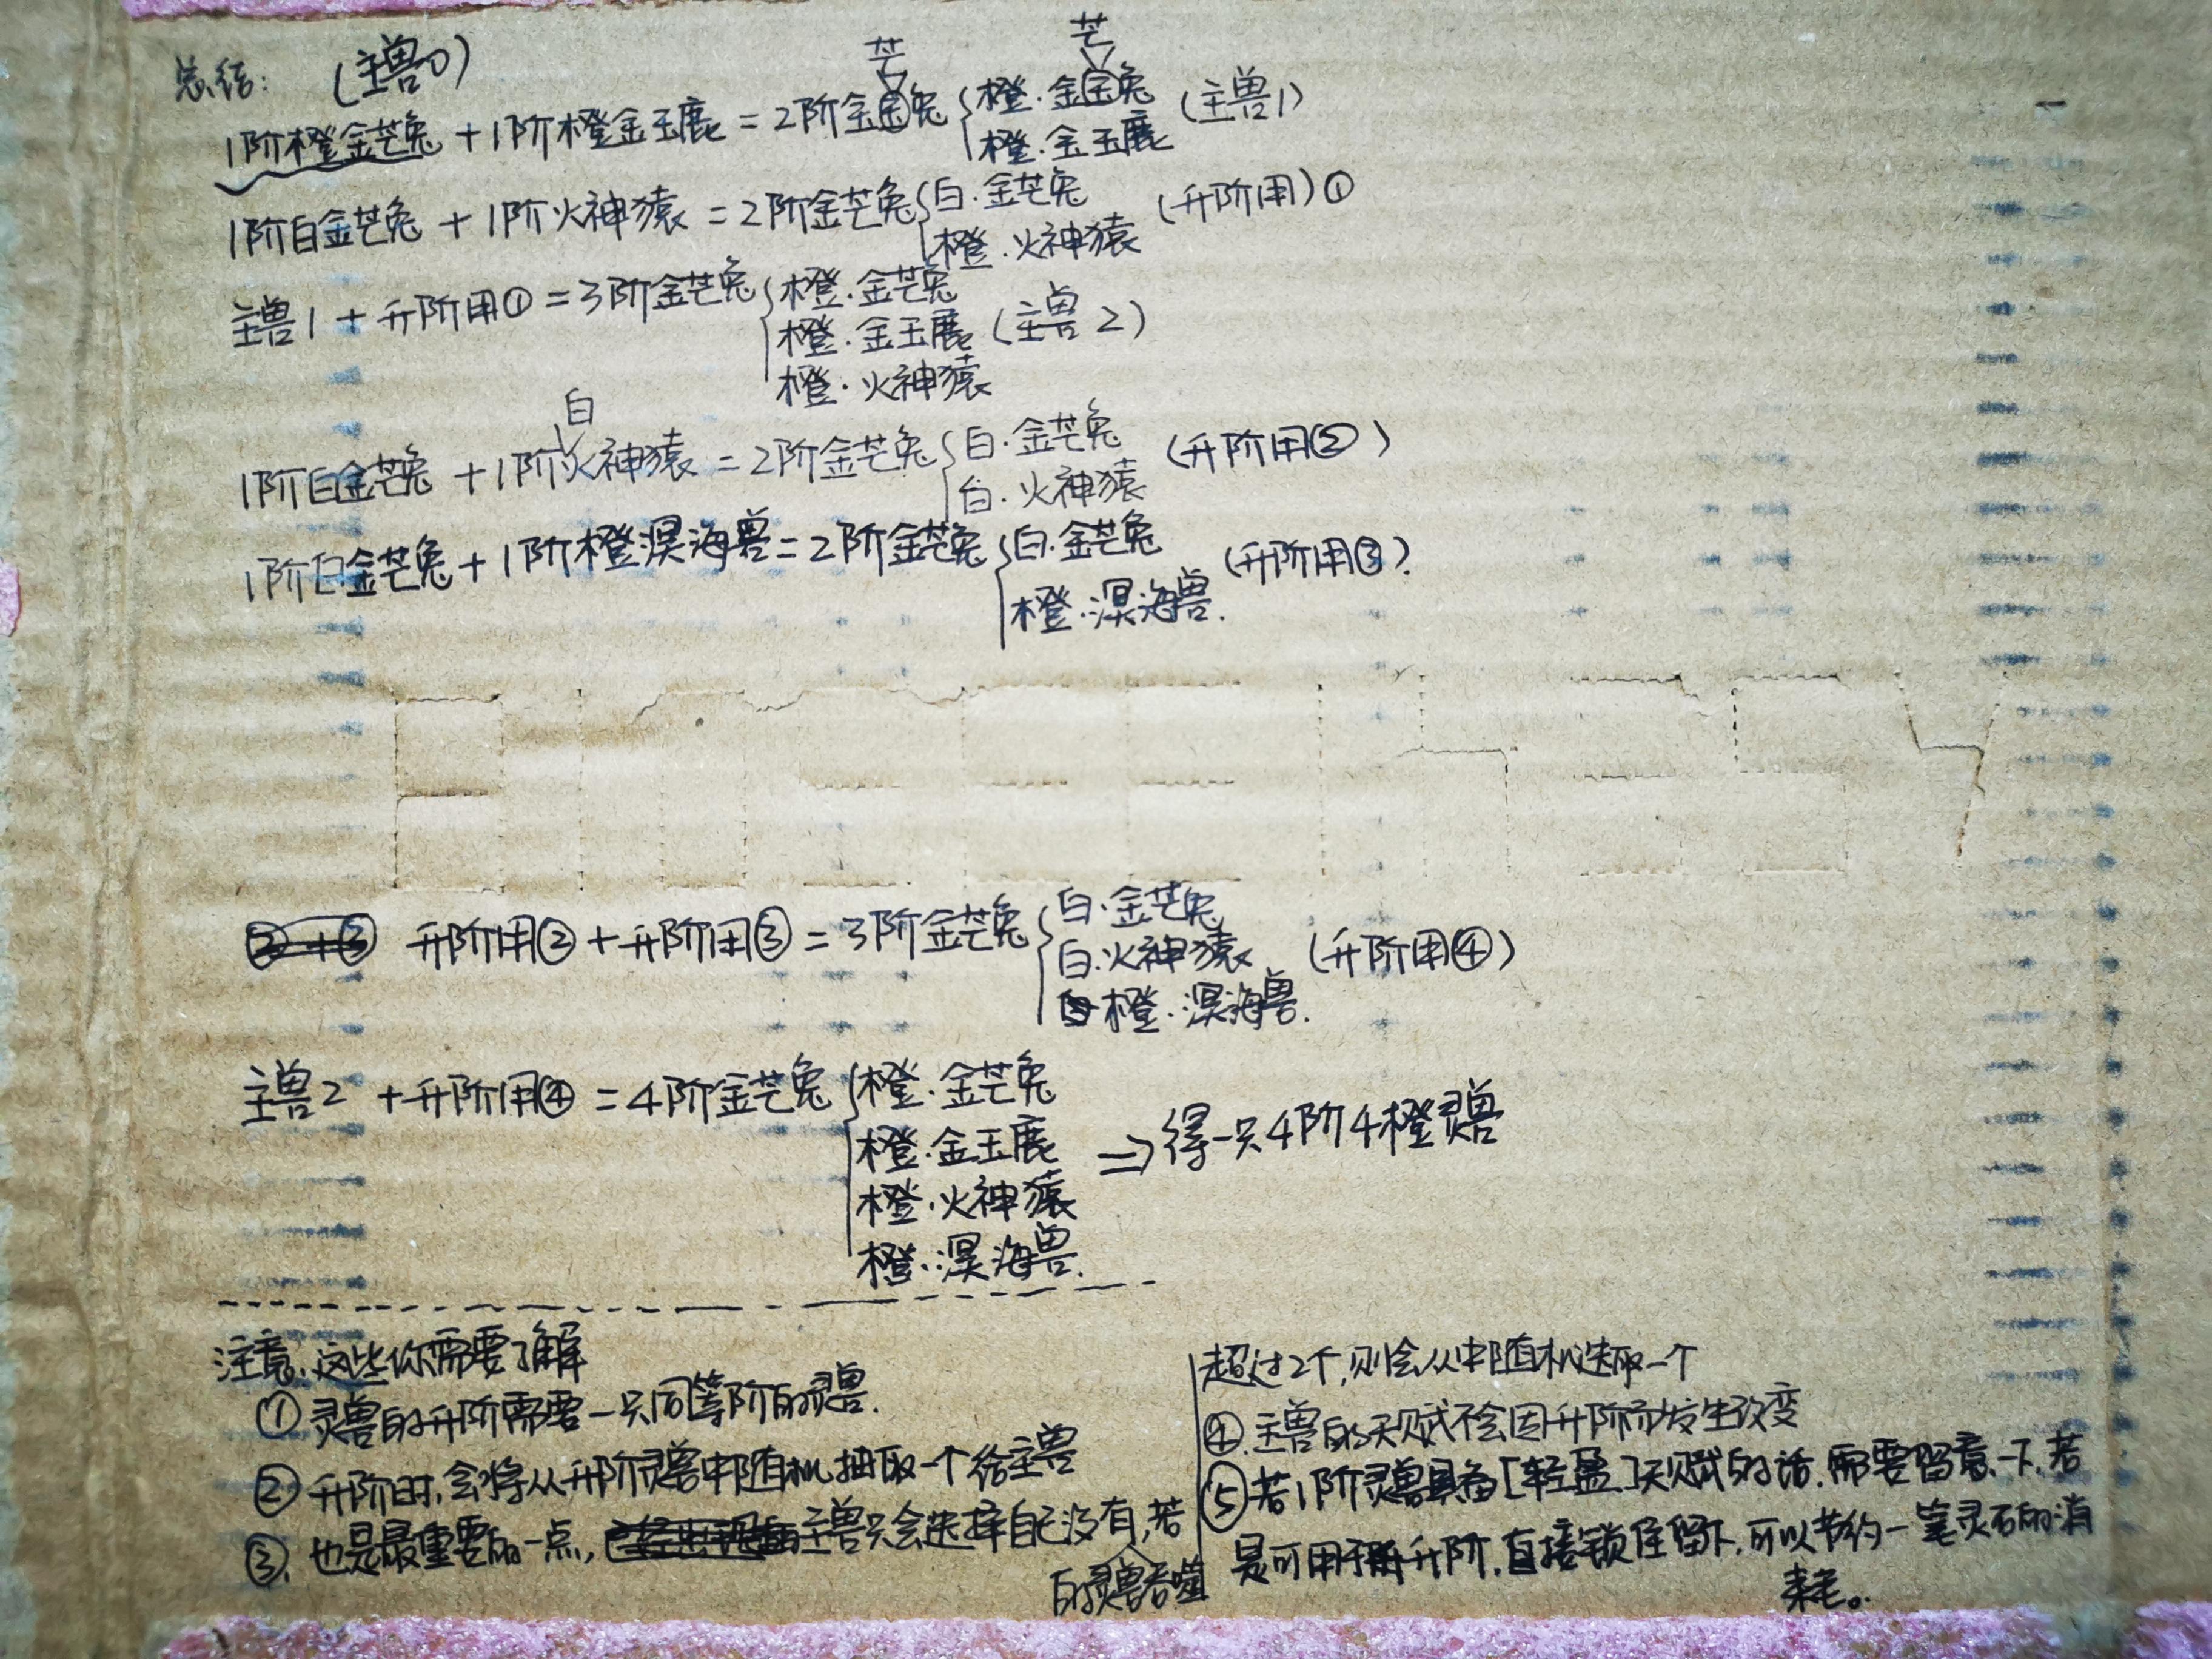 总结: (主兽0)
芒 芒
1阶橙金芒兔 + 1阶橙金玉鹿 = 2阶金金兔 { 橙·金金兔 (主兽1)
橙·金玉鹿
1阶白金芒兔 + 1阶火神猿 = 2阶金芒兔 { 白·金芒兔 (升阶用)①
橙·火神猿
主兽1 + 升阶用① = 3阶金芒兔 { 橙·金芒兔
橙·金玉鹿 (主兽2)
橙·火神猿
白
1阶白金芒兔 + 1阶火神猿 = 2阶金芒兔 { 白·金芒兔 (升阶用②)
白·火神猿
1阶白金芒兔 + 1阶橙溟海兽 = 2阶金芒兔 { 白·金芒兔 (升阶用③).
橙·溟海兽.
升阶用② + 升阶用③ = 3阶金芒兔 { 白·金芒兔
白·火神猿 (升阶用④)
橙·溟海兽.
主兽2 + 升阶用④ = 4阶金芒兔 { 橙·金芒兔
橙·金玉鹿 => 得一只4阶4橙灵兽
橙·火神猿
橙·溟海兽.
注意,这些你需要了解
①灵兽的升阶需要一只同等阶的灵兽.
②升阶时,会将从升阶灵兽中随机抽取一个给主兽
③.也是最重要的一点,主兽只会选择自己没有,若
的灵兽吞噬
超过2个,则会从中随机选取一个
④.主兽的天赋不会因升阶而发生改变
⑤若1阶灵兽具备[轻盈]天赋的话.需要留意一下,若
是可用于升阶,直接锁住留下,可以节约一笔灵石的消
耗。